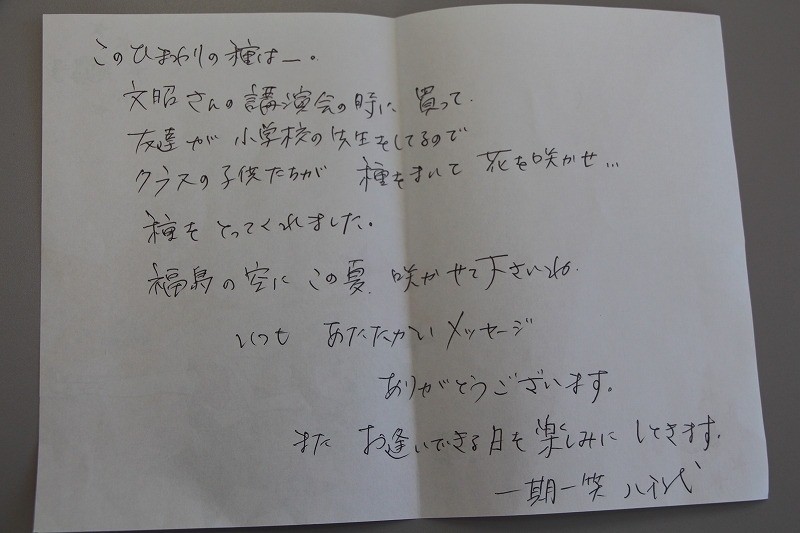 このひまわりの種は―。
文昭さんの講演会の時に買って
友達が小学校の先生をしてるので
クラスの子供たちが 種をまいて 花を咲かせ…
種をとってくれました。
福島の空に この夏 咲かせて下さいね
いつも あたたかい メッセージ
ありがとうございます。
また お逢いできる日を楽しみに してきます。
一期一笑